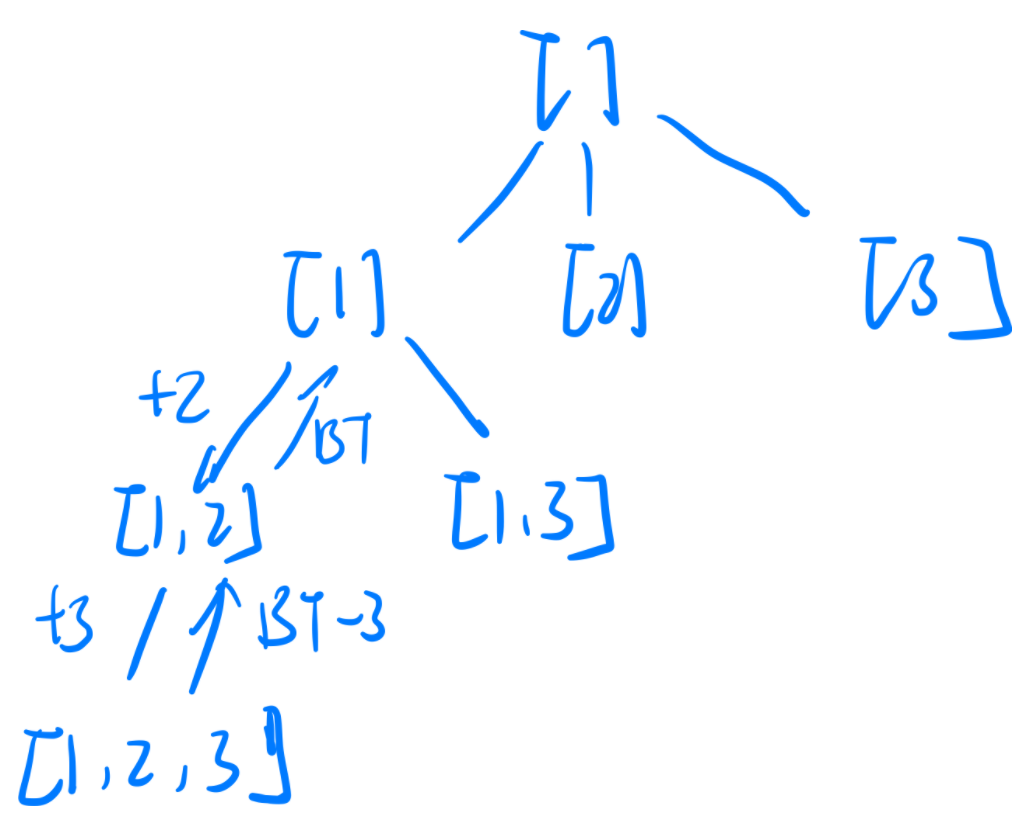 [ ]
[1] [2] [3]
+2 BT
[1,2] [1,3]
+3 BT-3
[1,2,3]